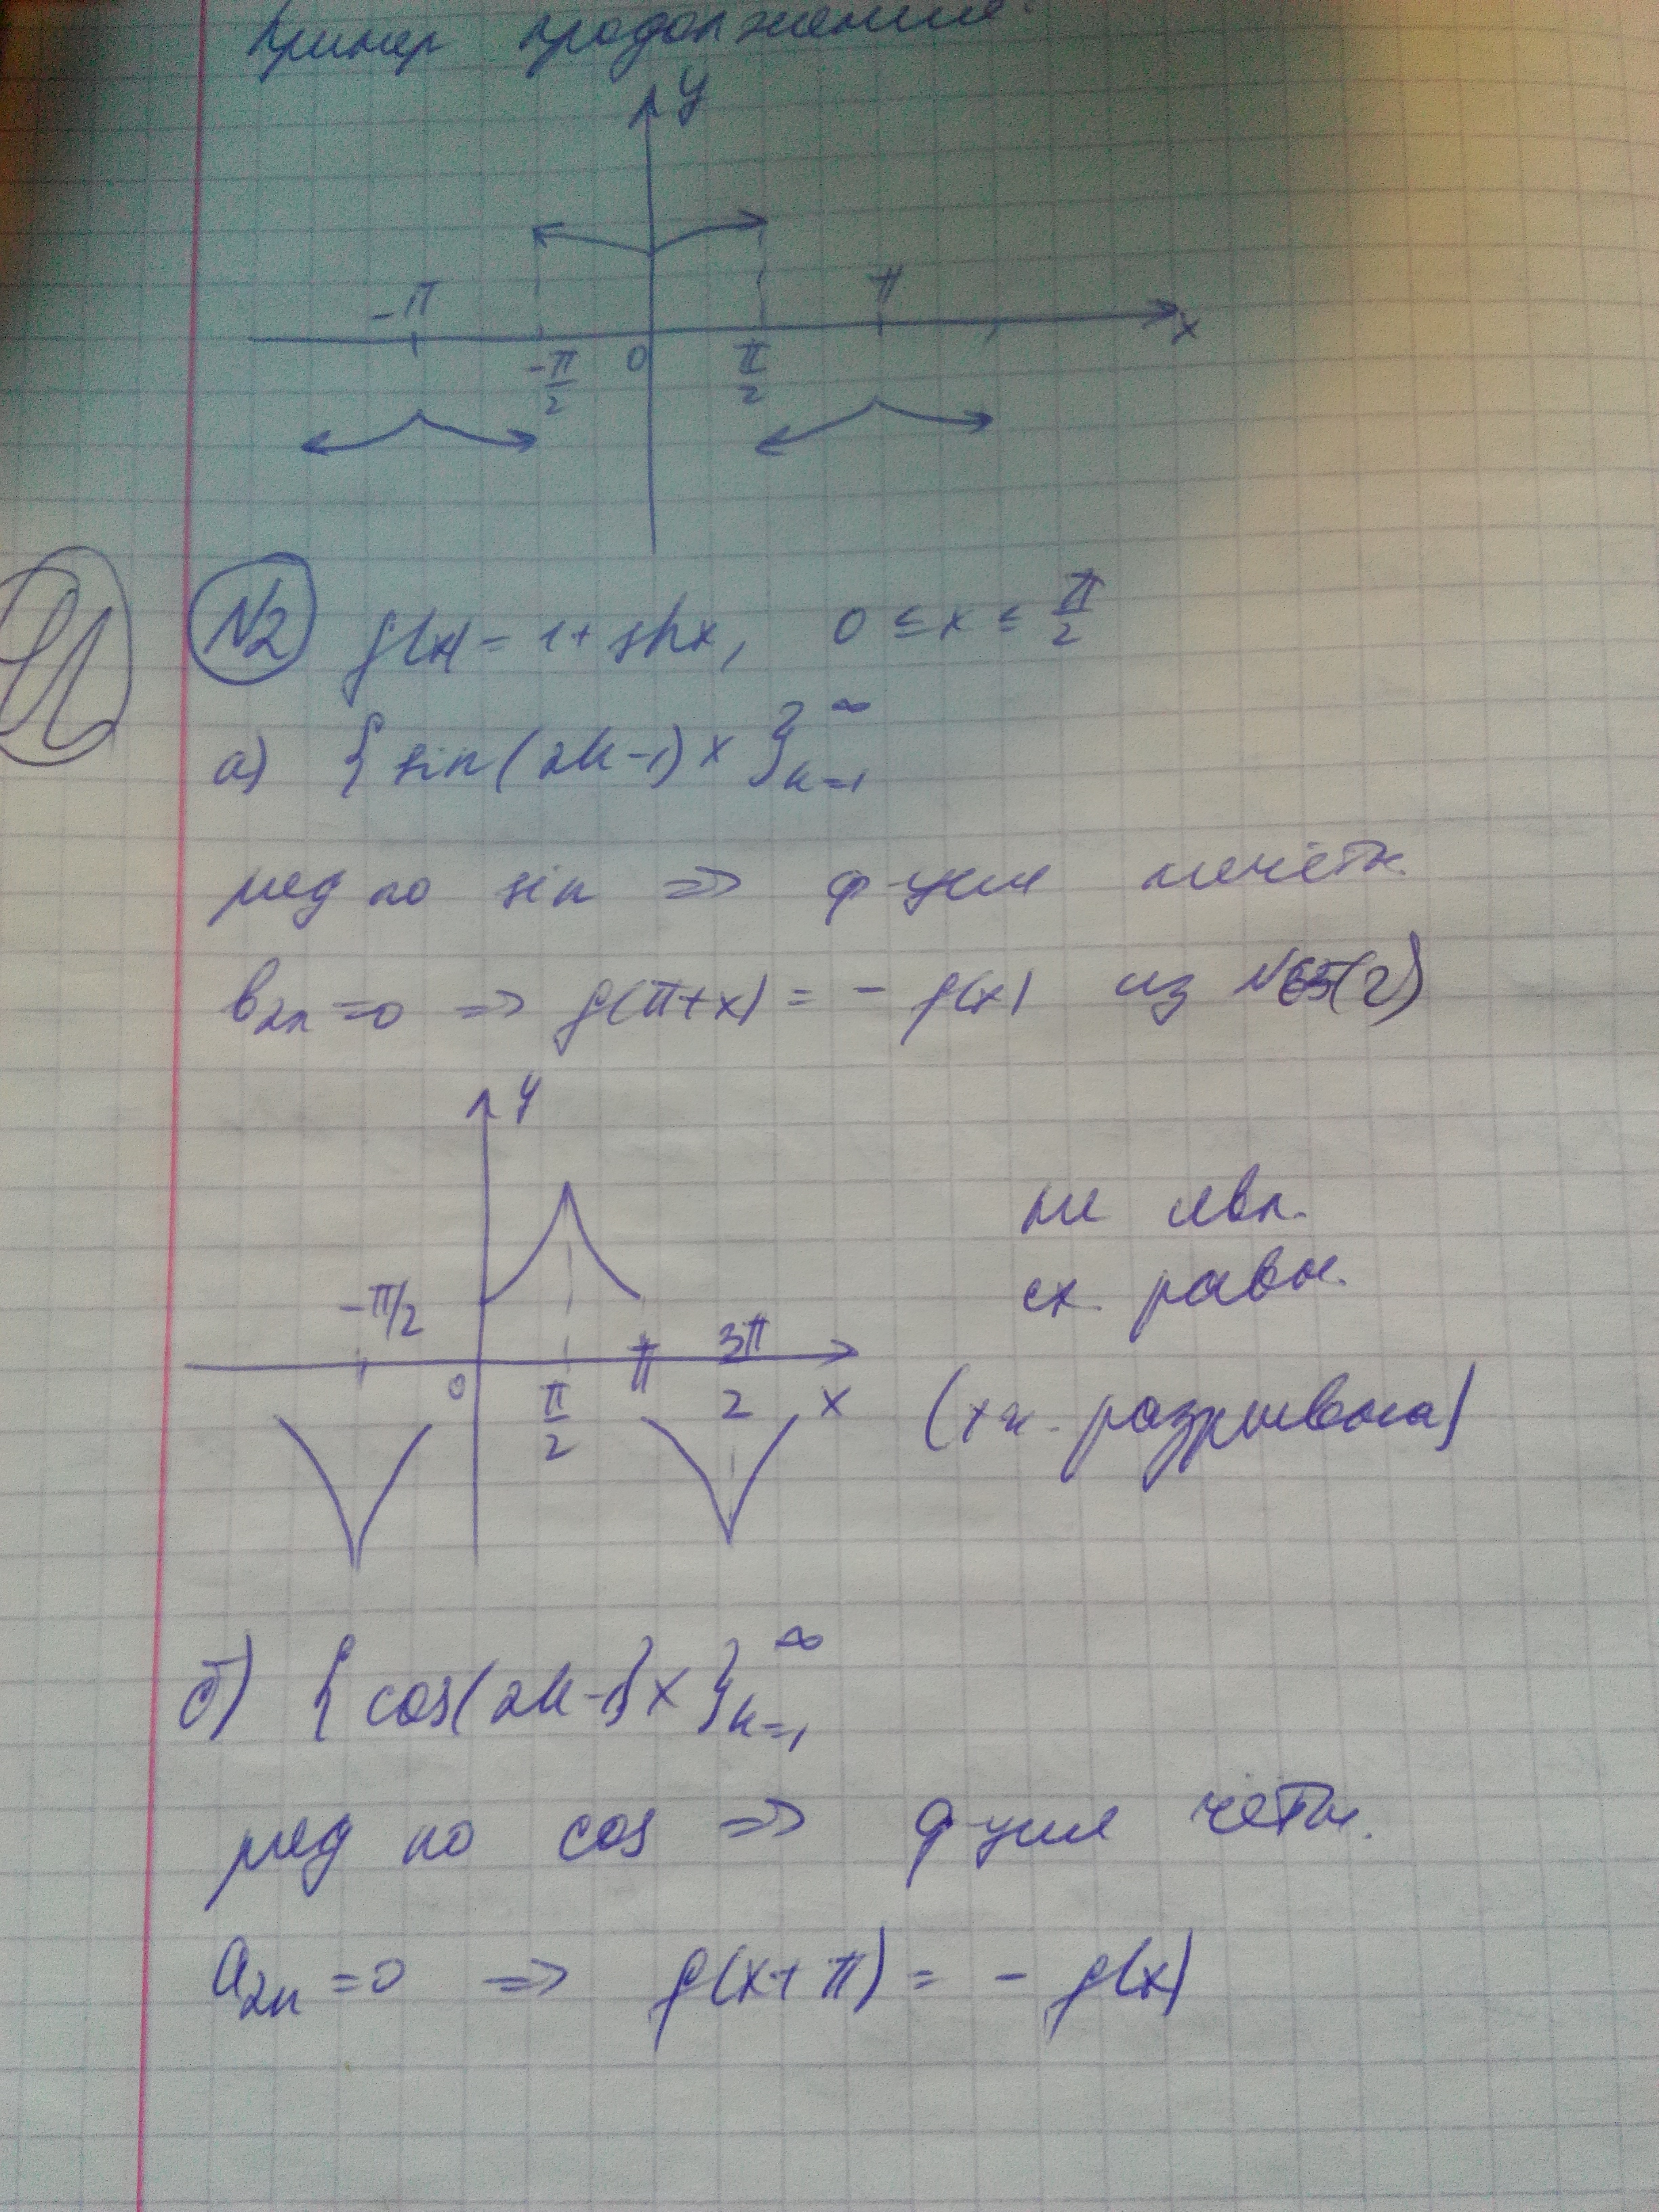 Пример продолжения:
y
-π π
x
-π/2 0 π/2
№2 f(x) = 1 + sh x, 0 ≤ x ≤ π/2
а) { sin(2k-1)x }_{k=1}^∞
ряд по sin ⇒ ф-ция нечётн.
b_{2n} = 0 ⇒ f(π+x) = - f(x) из №65(2)
y
не явл.
сх. равн.
-π/2 3π/2
0 π/2 π x
(т.к. разрывна)
б) { cos(2k-1)x }_{k=1}^∞
ряд по cos ⇒ ф-ция чётн.
a_{2n} = 0 ⇒ f(x+π) = - f(x)